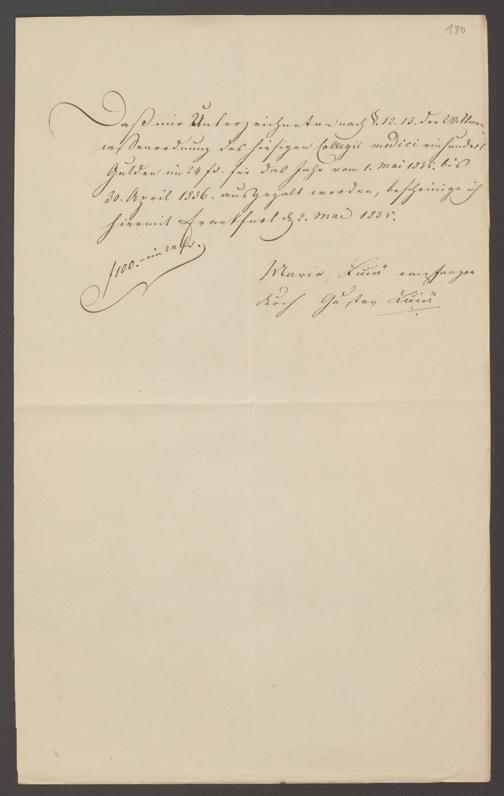 180
Daß mir Unterzeichneten nach §. 12. 13. der Wittwen
cassenordnung des hiesigen Collegii medici einhundert
Gulden im 24 f. für das Jahr vom 1. Mai 1835. bis
30. April 1836. ausgezalt worden, bescheinige ich
hiermit Frankfurt d. 2. Mai 1835.
f100.- im 24 f.
Maria empfangen
durch Gustav